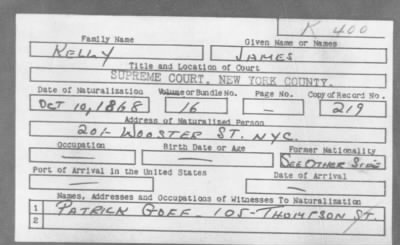 K 400
Family Name Given Name or Names
KELLY JAMES
Title and Location of Court
SUPREME COURT, NEW YORK COUNTY.
Date of Naturalization Volume or Bundle No. Page No. Copy of Record No.
OCT 10, 1868 16 — 219
Address of Naturalized Person
201- WOOSTER ST. NYC.
Occupation Birth Date or Age Former Nationality
— — SEE OTHER SIDE
Port of Arrival in the United States Date of Arrival
— —
Names, Addresses and Occupations of Witnesses To Naturalization
1 PATRICK GOFF - 105-THOMPSON ST.
2